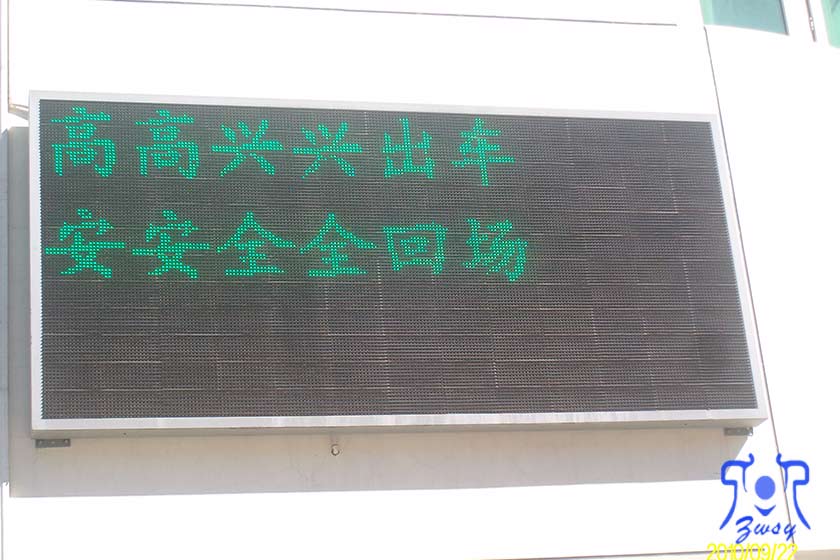 高高兴兴出车
安安全全回场
Zwsy
2010/09/22